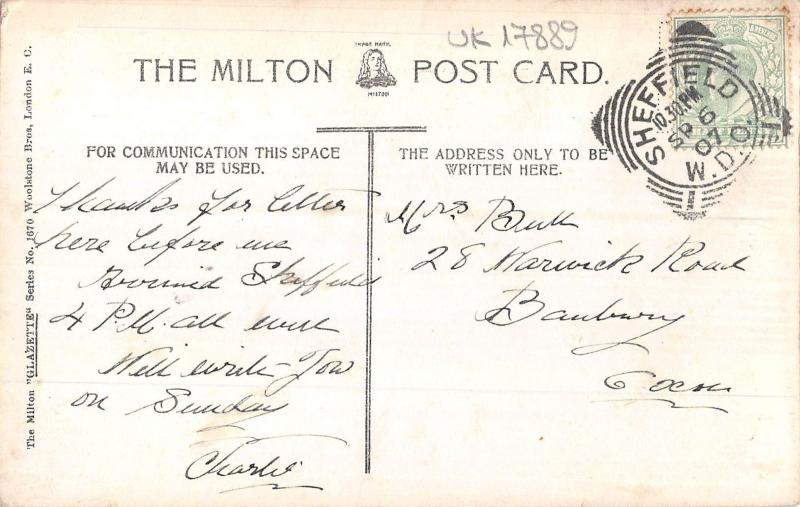 UK 17889
THE MILTON POST CARD.
TRADE MARK
MILTON
FOR COMMUNICATION THIS SPACE
MAY BE USED.
THE ADDRESS ONLY TO BE
WRITTEN HERE.
SHEFFIELD
10.30 PM
SP 6
07
W.D.O
1
The Milton "GLAZETTE" Series No. 1670 Woolstone Bros, London E. C.
Thanks for letter
here before me
Sheffield
4 P.M. all well
Will write You
on Sunday
Charlie
Mrs Bull
28 Warwick Road
Banbury
Oxon